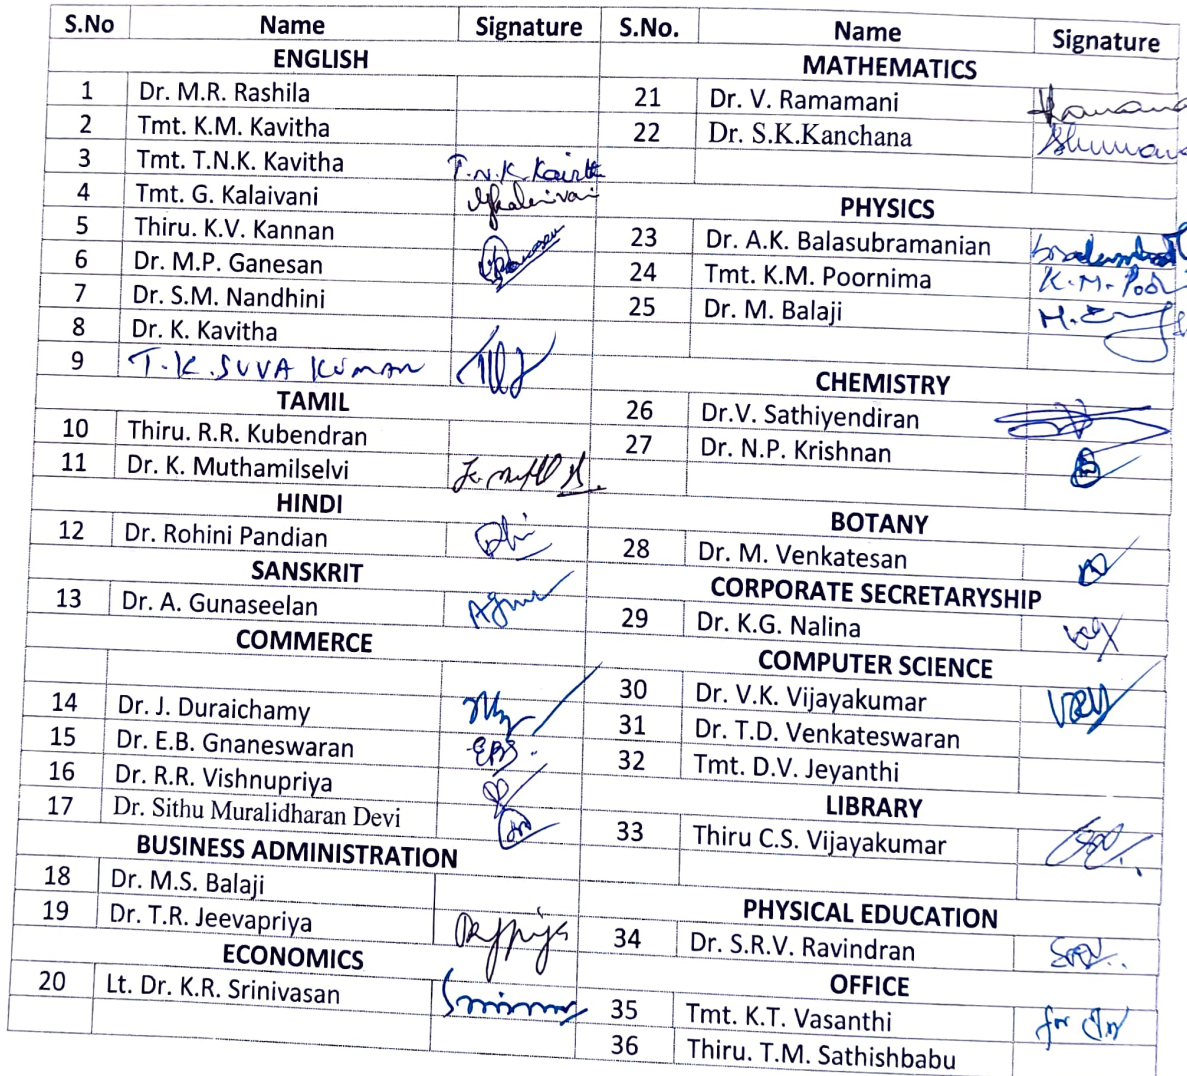 S.No Name Signature
ENGLISH
1 Dr. M.R. Rashila
2 Tmt. K.M. Kavitha
3 Tmt. T.N.K. Kavitha T.N.K. Kavitha
4 Tmt. G. Kalaivani GKalaivani
5 Thiru. K.V. Kannan
6 Dr. M.P. Ganesan
7 Dr. S.M. Nandhini
8 Dr. K. Kavitha
9 T.K. SUVA KUMAR
TAMIL
10 Thiru. R.R. Kubendran
11 Dr. K. Muthamilselvi
HINDI
12 Dr. Rohini Pandian
SANSKRIT
13 Dr. A. Gunaseelan
COMMERCE
14 Dr. J. Duraichamy
15 Dr. E.B. Gnaneswaran
16 Dr. R.R. Vishnupriya
17 Dr. Sithu Muralidharan Devi
BUSINESS ADMINISTRATION
18 Dr. M.S. Balaji
19 Dr. T.R. Jeevapriya
ECONOMICS
20 Lt. Dr. K.R. Srinivasan
S.No. Name Signature
MATHEMATICS
21 Dr. V. Ramamani
22 Dr. S.K.Kanchana
PHYSICS
23 Dr. A.K. Balasubramanian
24 Tmt. K.M. Poornima K.M. Poor
25 Dr. M. Balaji
CHEMISTRY
26 Dr.V. Sathiyendiran
27 Dr. N.P. Krishnan
BOTANY
28 Dr. M. Venkatesan
CORPORATE SECRETARYSHIP
29 Dr. K.G. Nalina
COMPUTER SCIENCE
30 Dr. V.K. Vijayakumar
31 Dr. T.D. Venkateswaran
32 Tmt. D.V. Jeyanthi
LIBRARY
33 Thiru C.S. Vijayakumar
PHYSICAL EDUCATION
34 Dr. S.R.V. Ravindran
OFFICE
35 Tmt. K.T. Vasanthi for
36 Thiru. T.M. Sathishbabu